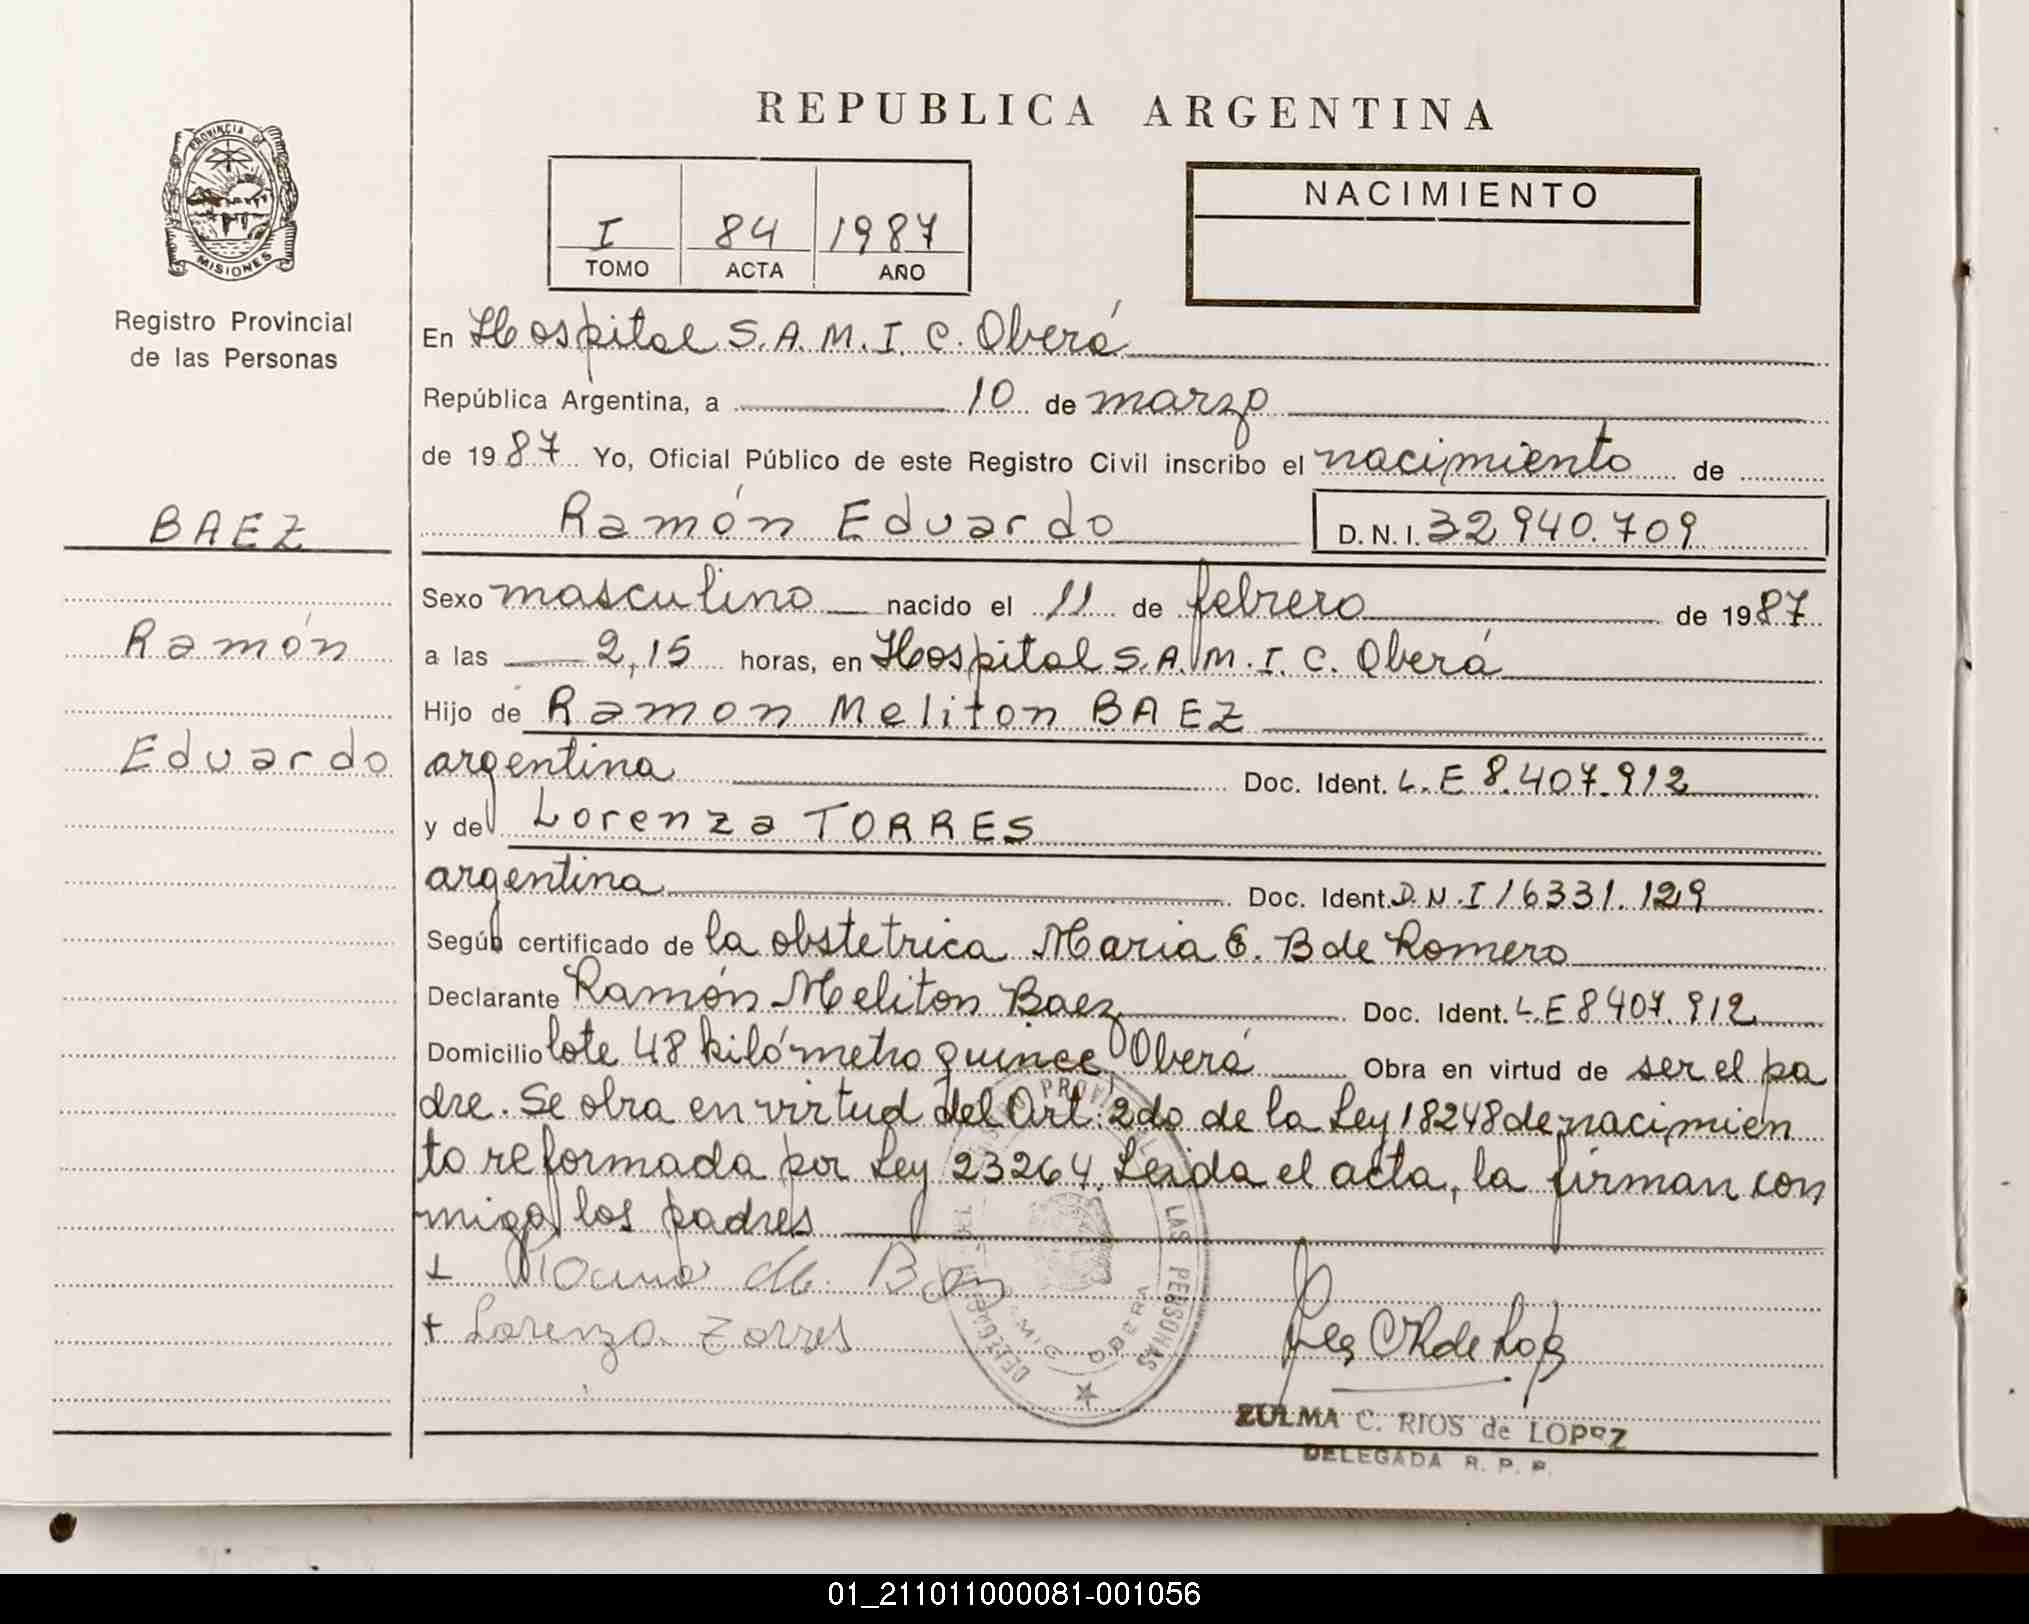 REPUBLICA ARGENTINA
PROVINCIA DE
MISIONES
Registro Provincial
de las Personas
I 84 1987
TOMO ACTA AÑO
NACIMIENTO
En Hospital S.A.M.I.C. Oberá
República Argentina, a 10 de marzo
de 1987 Yo, Oficial Público de este Registro Civil inscribo el nacimiento de
BAEZ
Ramón Eduardo D.N.I. 32940.709
Sexo masculino nacido el 11 de febrero de 1987
Ramón
a las 2,15 horas, en Hospital S.A.M.I.C. Oberá
Hijo de Ramon Meliton BAEZ
Eduardo
argentina Doc. Ident. L.E 8.407.912
y de Lorenza TORRES
argentina Doc. Ident. D.N.I 16331.129
Según certificado de la obstetrica Maria E. B de Romero
Declarante Ramón Meliton Baez Doc. Ident. L.E 8407.912
Domicilio lote 48 kilómetro quince Oberá Obra en virtud de ser el pa
dre. Se obra en virtud del Art. 2do de la Ley 18248 de nacimien
to reformada por Ley 23264. Leida el acta, la firman con
migo los padres
+ Lorenza Torres
LAS PERSONAS
OBERA
ZULMA C. RIOS de LOPEZ
DELEGADA R. P. P.
01_211011000081-001056